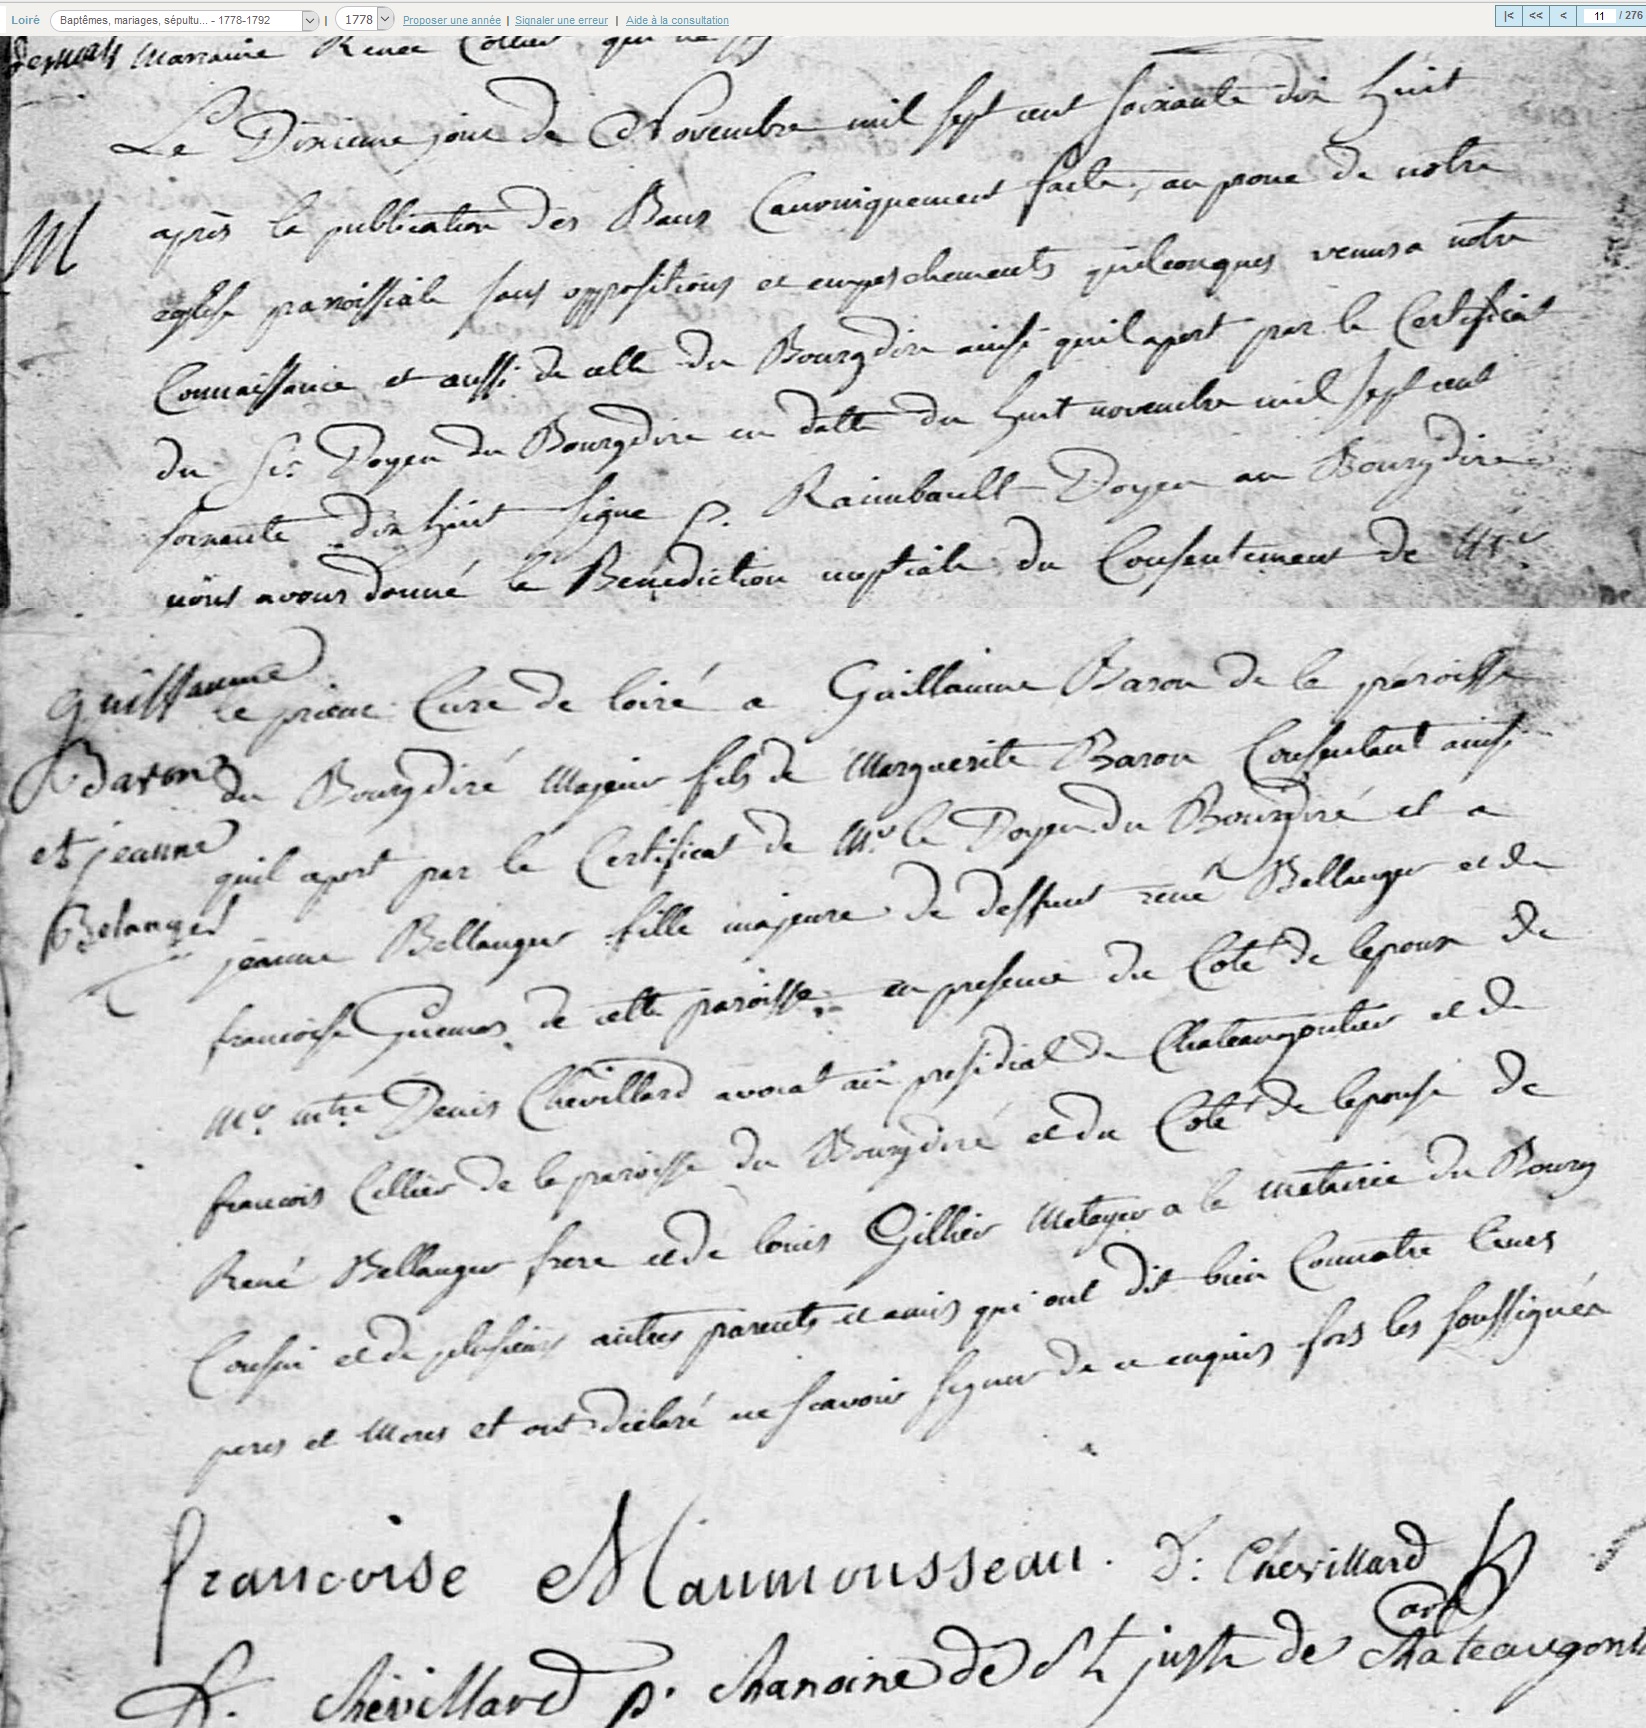 Loiré Baptêmes, mariages, sépultu... - 1778-1792 | 1778 Proposer une année | Signaler une erreur | Aide à la consultation |< << < 11 / 276
Marraine Renée qui ne
Le Dixieme jour de Novembre mil sept cent soixante dix huit
M
après la publication des Bans Canoniquement faite, au prone de notre
eglise paroissiale sans oppositions et empeschements quelconques venus a notre
Connaissance et aussi de celle du Bourgdiré ainsi quil apert par le Certificat
du Sr. Doyen du Bourgdiré en datte du huit novembre mil sept cent
soixante dix huit signé P. Raimbault Doyen au Bourgdiré
nous avons donné la Benediction nuptiale du Consentement de Mr
Guillaume
Baron
et jeanne
Belanger
le prieur Curé de loiré a Guillaume Baron de la paroisse
du Bourgdiré Majeur fils de Marguerite Baron Consentant ainsi
quil apert par le Certificat de Mr. le Doyen du Bourgdiré et a
jeanne Bellanger fille majeure de deffunt rené Bellanger et de
francoise de cette paroisse, en presence du Coté de lepoux de
Mr. mtre Denis Chevillard avocat au presidial de Chateaugontier et de
francois Cellier de la paroisse du Bourgdiré et du Coté de lepouse de
René Bellanger frere et de louis Gillier Metayer a la metairie du Bourg
Cousin et de plusieurs autres parents et amis qui ont dit bien Connoitre leurs
peres et Meres et ont déclaré ne scavoir signer de ce enquis fors les soussignés
francoise Maumousseau. D: Chevillard
avt
Chevillard p. Chanoine de St juste de Chateaugont